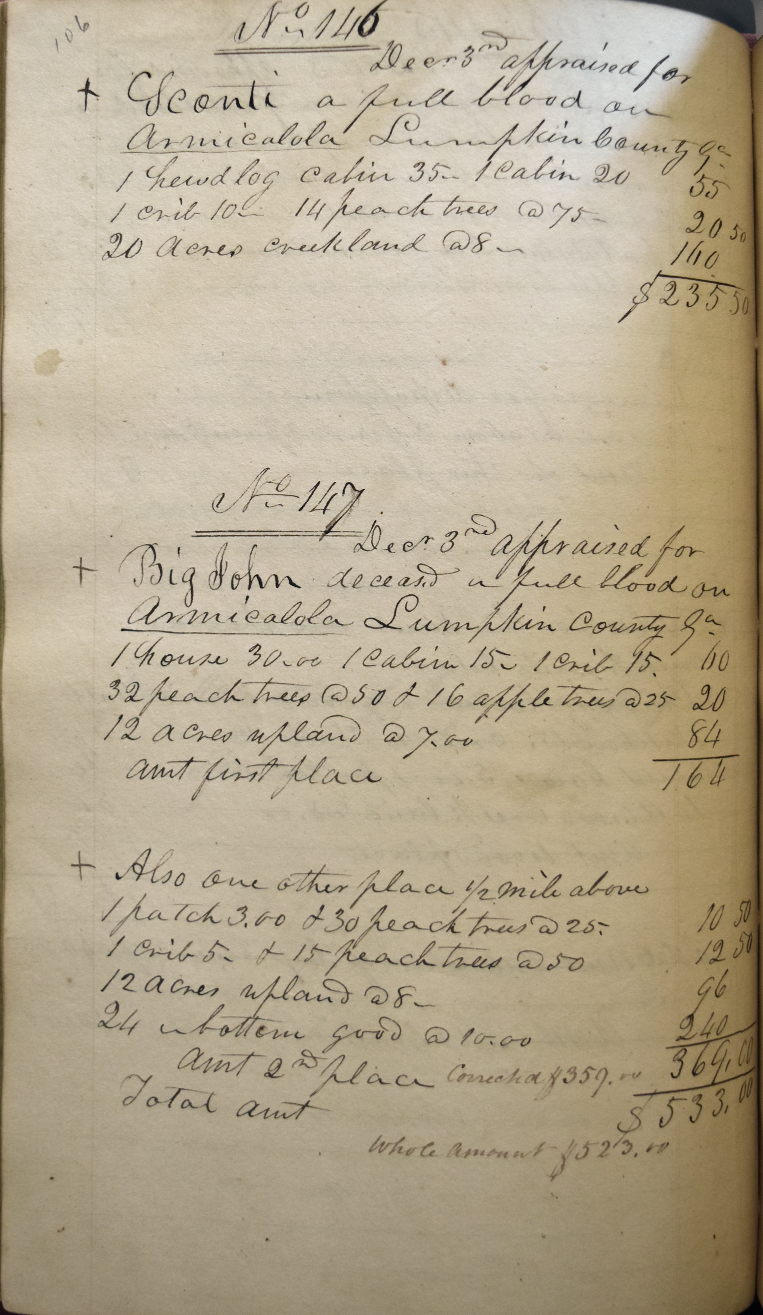 106
No 146
Decr 3rd appraised for
+ Sconti a full blood on
Armicalola Lumpkin County Ga
1 hewd log cabin 35- 1 cabin 20 55
1 crib 10- 14 peach trees @ 75- 20 50
20 acres creekland @ 8- 160
$ 235 50
No 147
Decr 3rd appraised for
+ Big John deceasd a full blood on
Armicalola Lumpkin County Ga
1 house 30.00 1 cabin 15- 1 crib 15. 60
32 peach trees @ 50 & 16 apple trees @ 25 20
12 acres upland @ 7.00 84
amt first place 164
+ Also one other place 1/2 mile above
1 patch 3.00 & 30 peach trees @ 25- 10 50
1 crib 5- & 15 peach trees @ 50 12 50
12 acres upland @ 8- 96
24 " bottom good @ 10.00 240
amt 2nd place Corrected $359.00 369.00
Total amt $ 533.00
Whole amount $523.00